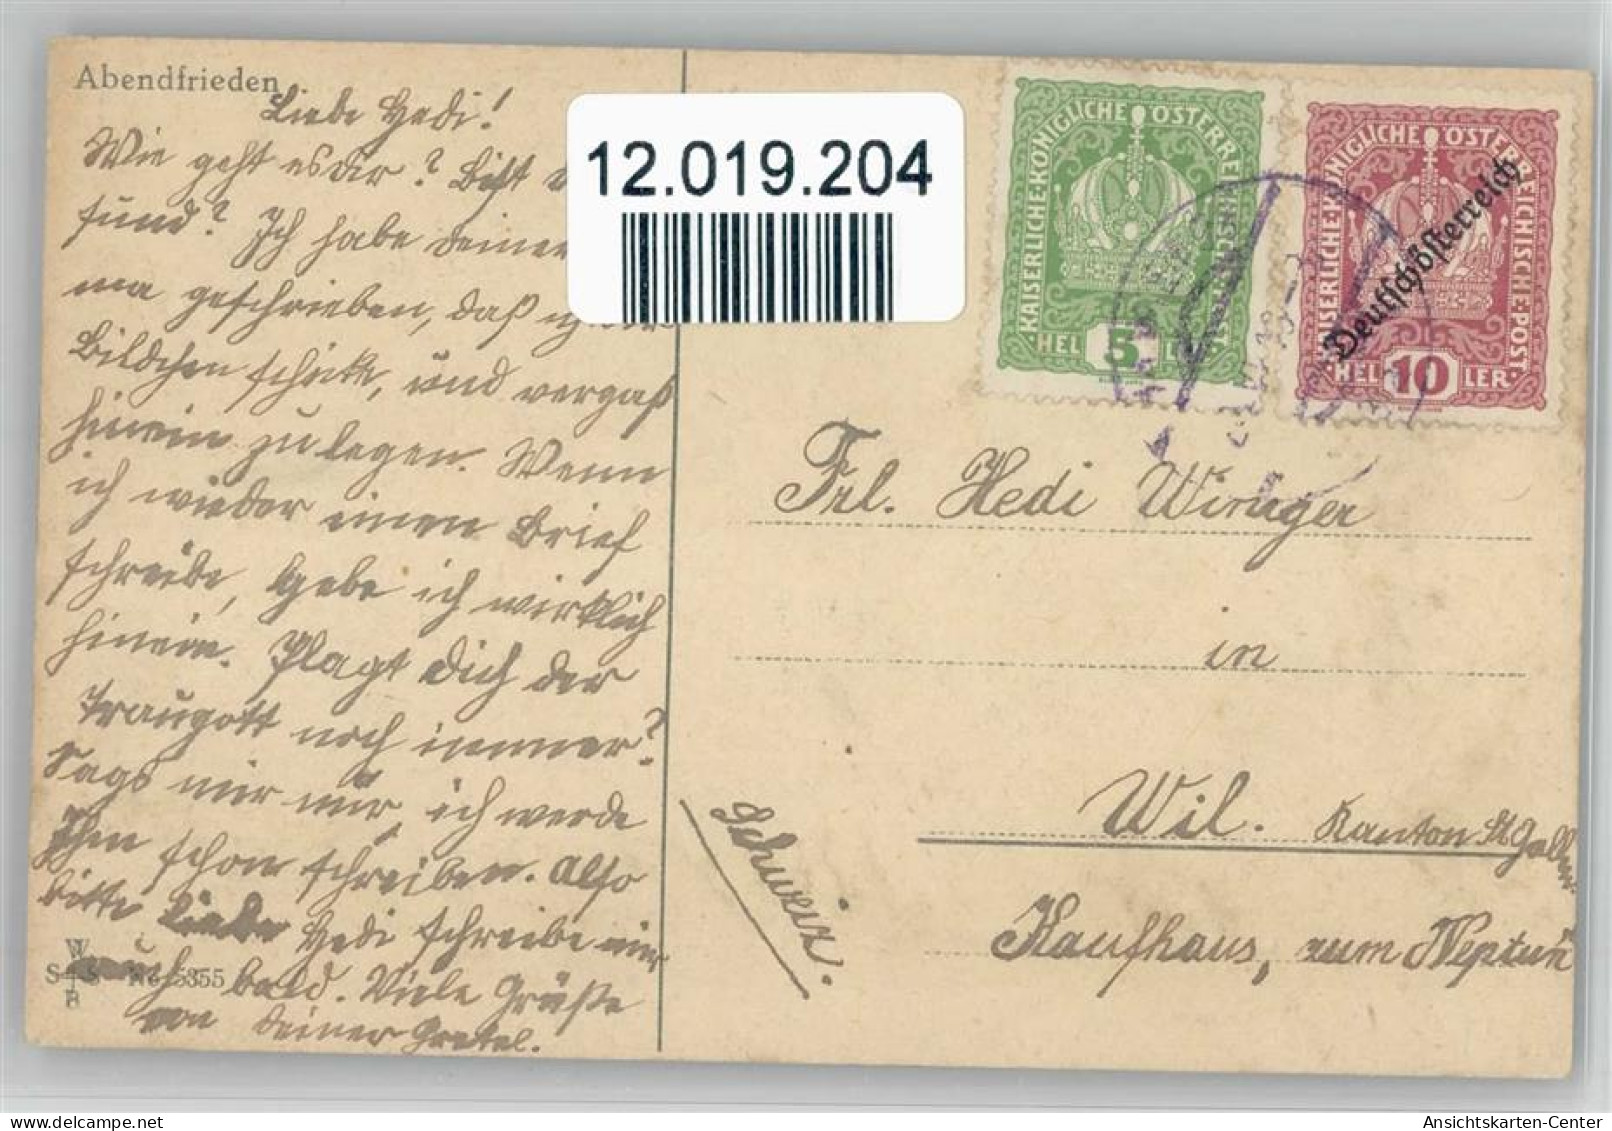 Abendfrieden
Liebe Hedi!
Wie geht es dir? Bist
sund? Ich habe deiner
ma geschrieben, daß
Bildchen schicke, und vergaß
hinein zu legen. Wenn
ich wieder einen Brief
schreibe, lege ich wirklich
hinein. Plagt dich der
Traugott noch immer?
Sags mir nur, ich werde
Ihm schon schreiben. Also
bitte Liebe Hedi schreibe mir
auch bald. Viele Grüße
von deiner Gretel.
W
S S
B
No 5355
12.019.204
KAISERLICHE KÖNIGLICHE ÖSTERREICHISCHE POST
5
HELLER
KAISERLICHE KÖNIGLICHE ÖSTERREICHISCHE POST
Deutschösterreich
HELLER 10
Frl. Hedi Winiger
in
Wil. Kanton St. Gallen
Kaufhaus, zum Neptun
Schweiz.
Ansichtskarten-Center